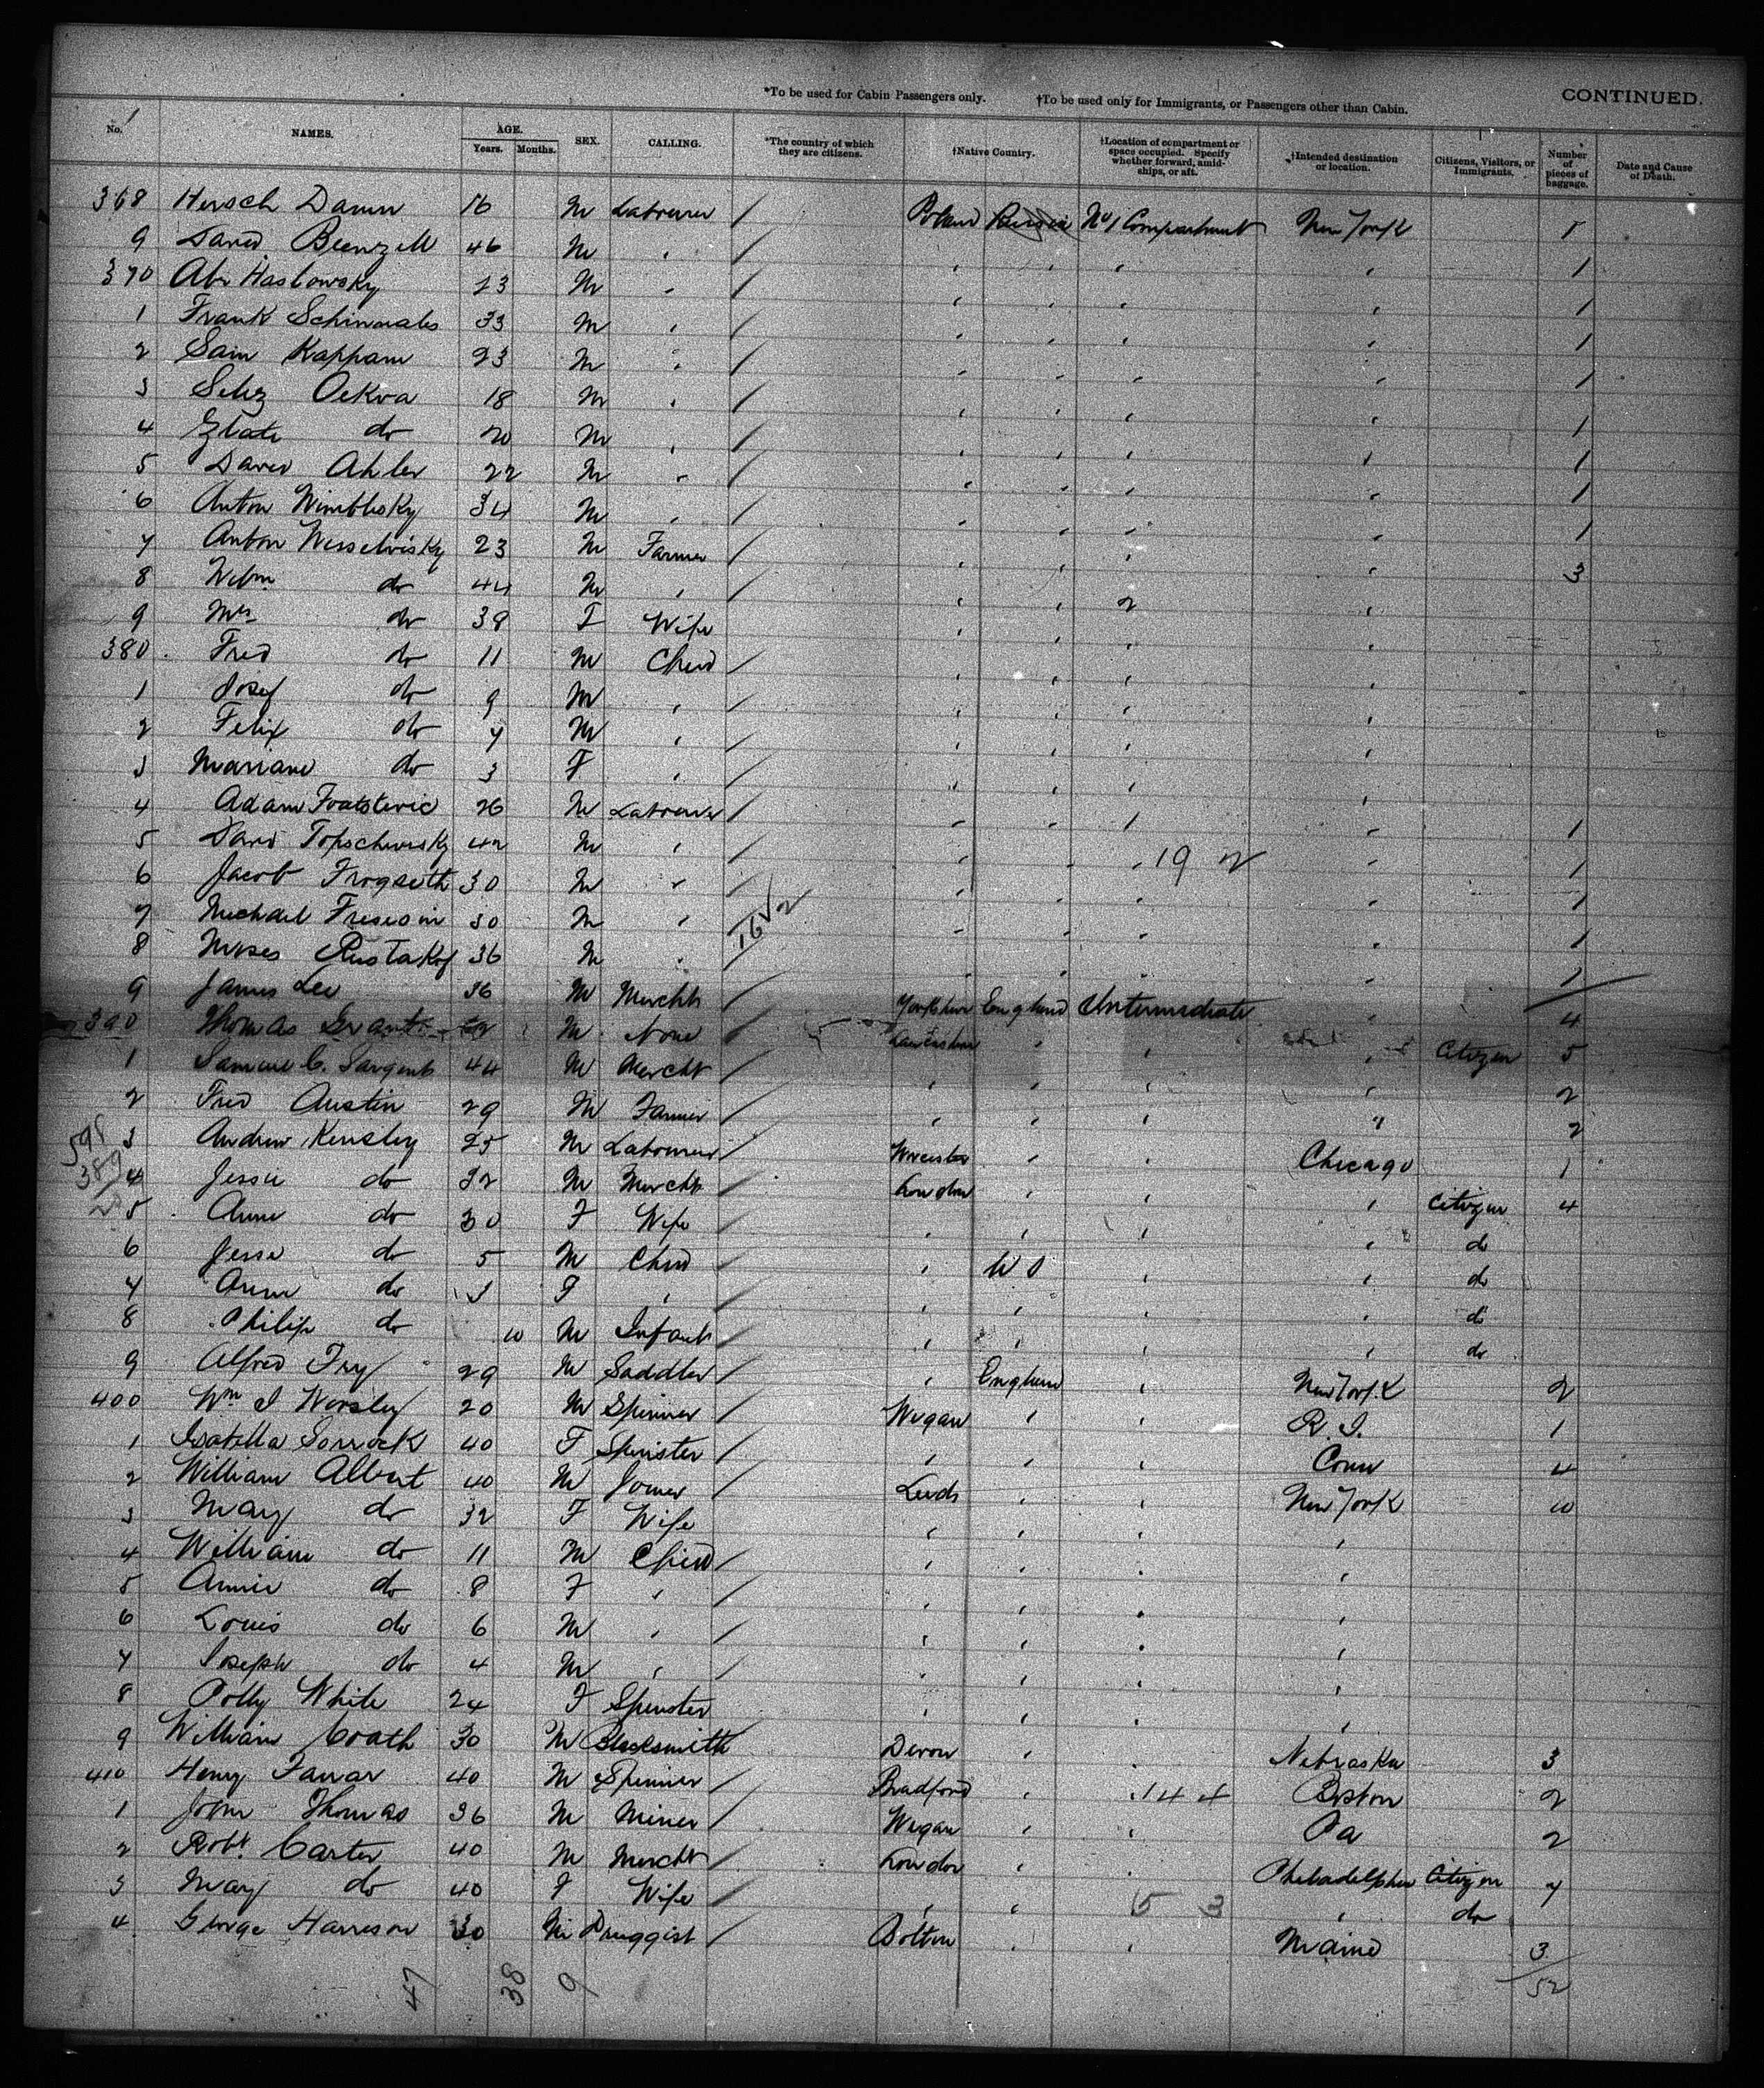 *To be used for Cabin Passengers only. †To be used only for Immigrants, or Passengers other than Cabin. CONTINUED.
No. NAMES. AGE. Years. Months. SEX. CALLING. *The country of which they are citizens. †Native Country. †Location of compartment or space occupied. Specify whether forward, amidships, or aft. †Intended destination or location. Citizens, Visitors, or Immigrants. Number of pieces of baggage. Date and Cause of Death.
368 Hersch Damm 16 M Labourer / Poland Russia No 1 Compartment New York 1
9 David 46 M " / " " " " 1
370 Abr Haslowsky 23 M " / " " " " 1
1 Frank 33 M " / " " " " 1
2 Sam Kappam 23 M " / " " " " 1
3 Oekva 18 M " / " " " " 1
4 do 20 M " / " " " " 1
5 David Ahler 22 M " / " " " " 1
6 Anton 34 M " / " " " " 1
7 Anton 23 M Farmer / " " " " 3
8 do 44 M " / " " 2 "
9 Mrs do 38 F Wife " " " "
380 Fred do 11 M Child / " " " "
1 Josef do 9 M " / " " " "
2 Felix do 7 M " / " " " "
3 Mariane do 3 F " / " " " "
4 Adam 26 M Labourer / " " 1 " 1
5 David 42 M " / " " " 19 2 " 1
6 Jacob 30 M " / " " " " 1
7 Michael 30 M " / " " " " 1
8 Moses 36 M " / " " " " 1
9 James Lee 36 M Mercht / Yorkshire England Intermediate " 4
390 Thomas Grant M None Lancashire " " " Citizen 5
1 Samuel C. Sargent 44 M Mercht / " " " " 2
2 Fred Austin 29 M Farmer / " " " " 2
3 Andrew Kensley 25 M Labourer / Worcester " " Chicago 1
4 Jesse do 32 M Mercht / London " " " Citizen 4
5 Anne do 30 F Wife / " " " " do
6 Jesse do 5 M Child / " U S " " do
7 Anne do 3 F " / " " " " do
8 Philip do 10 M Infant / " " " " do
9 Alfred Fry 29 M Saddler / " England " New York 2
400 Wm I Worsley 20 M Spinner / Wigan " " R. I. 1
1 Isabella Sorrock 40 F Spinster / " " " Conn 4
2 William Albert 40 M Joiner / Leeds " " New York 10
3 Mary do 32 F Wife " " " "
4 William do 11 M Child / " " " "
5 Annie do 8 F " / " " " "
6 Louis do 6 M " / " " " "
7 Joseph do 4 M " / " " " "
8 Polly White 24 F Spinster " " " "
9 William Coath 30 M Blacksmith Devon " " Nebraska 3
410 Henry Farrar 40 M Spinner / Bradford " " 14 4 Boston 2
1 John Thomas 36 M Miner / Wigan " " Pa 2
2 Robt Carter 40 M Mercht / London " " Philadelphia Citizen 7
3 Mary do 40 F Wife / " " 5 3 " do
4 George Harrison 30 M Druggist / Bolton " " Maine 3
47 38 9 52